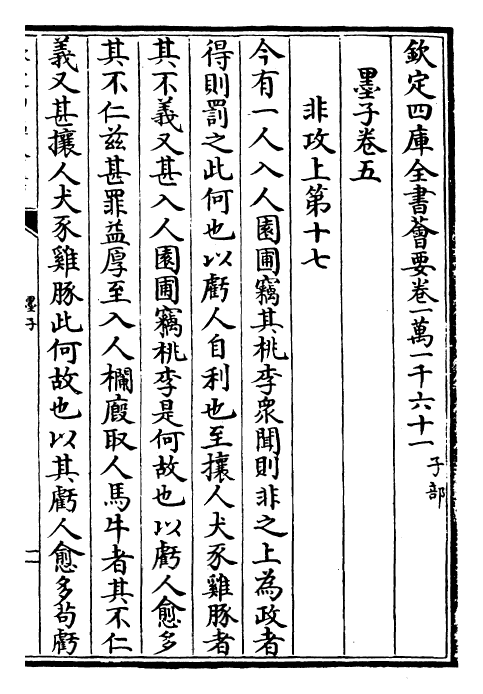 欽定四庫全書薈要卷一萬一千六十一 子部
墨子卷五
非攻上第十七
今有一人入人園圃竊其桃李衆聞則非之上為政者
得則罰之此何也以虧人自利也至攘人犬豕雞豚者
其不義又甚入人園圃竊桃李是何故也以虧人愈多
其不仁茲甚罪益厚至入人欄廏取人馬牛者其不仁
義又甚攘人犬豕雞豚此何故也以其虧人愈多苟虧
墨子
一